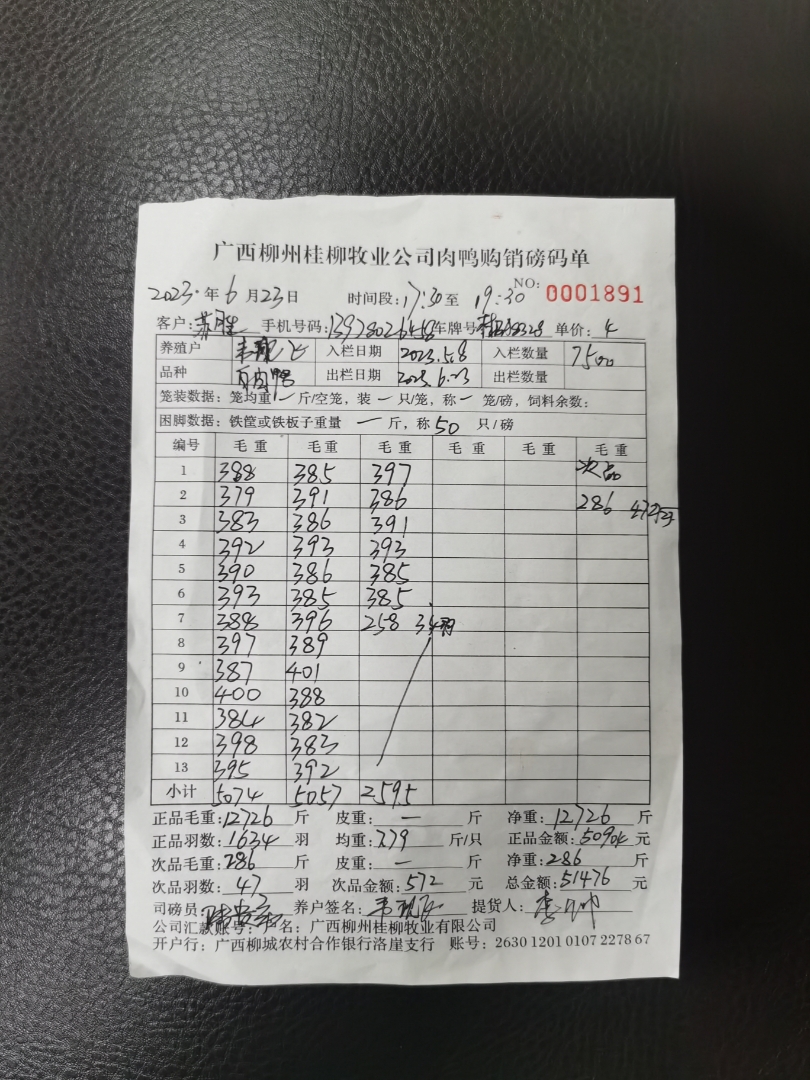 广西柳州桂柳牧业公司肉鸭购销磅码单
2023.年6月23日 时间段:17:30至19:30 NO: 0001891
客户:苏胜 手机号码:13978026458 车牌号 单价:4
养殖户 入栏日期 2023.5.8 入栏数量 7500
品种 出栏日期 2023.6.23 出栏数量
笼装数据:笼均重一斤/空笼,装一只/笼,称一笼/磅,饲料余数:
困脚数据:铁筐或铁板子重量一斤,称50只/磅
编号 毛重 毛重 毛重 毛重 毛重 毛重
1 388 385 397 次品
2 379 391 386 286 47羽
3 383 386 391
4 392 393 393
5 390 386 385
6 393 385 385
7 388 396 258 34羽
8 397 389
9 387 401
10 400 388
11 384 382
12 398 383
13 395 392
小计 5074 5057 2595
正品毛重:12726斤 皮重:一斤 净重:12726斤
正品羽数:1634羽 均重:7.79斤/只 正品金额:50904元
次品毛重:286斤 皮重:一斤 净重:286斤
次品羽数:47羽 次品金额:572元 总金额:51476元
司磅员: 养户签名: 提货人:
公司汇款账号:户名:广西柳州桂柳牧业有限公司
开户行:广西柳城农村合作银行洛崖支行 账号:2630 1201 0107 2278 67